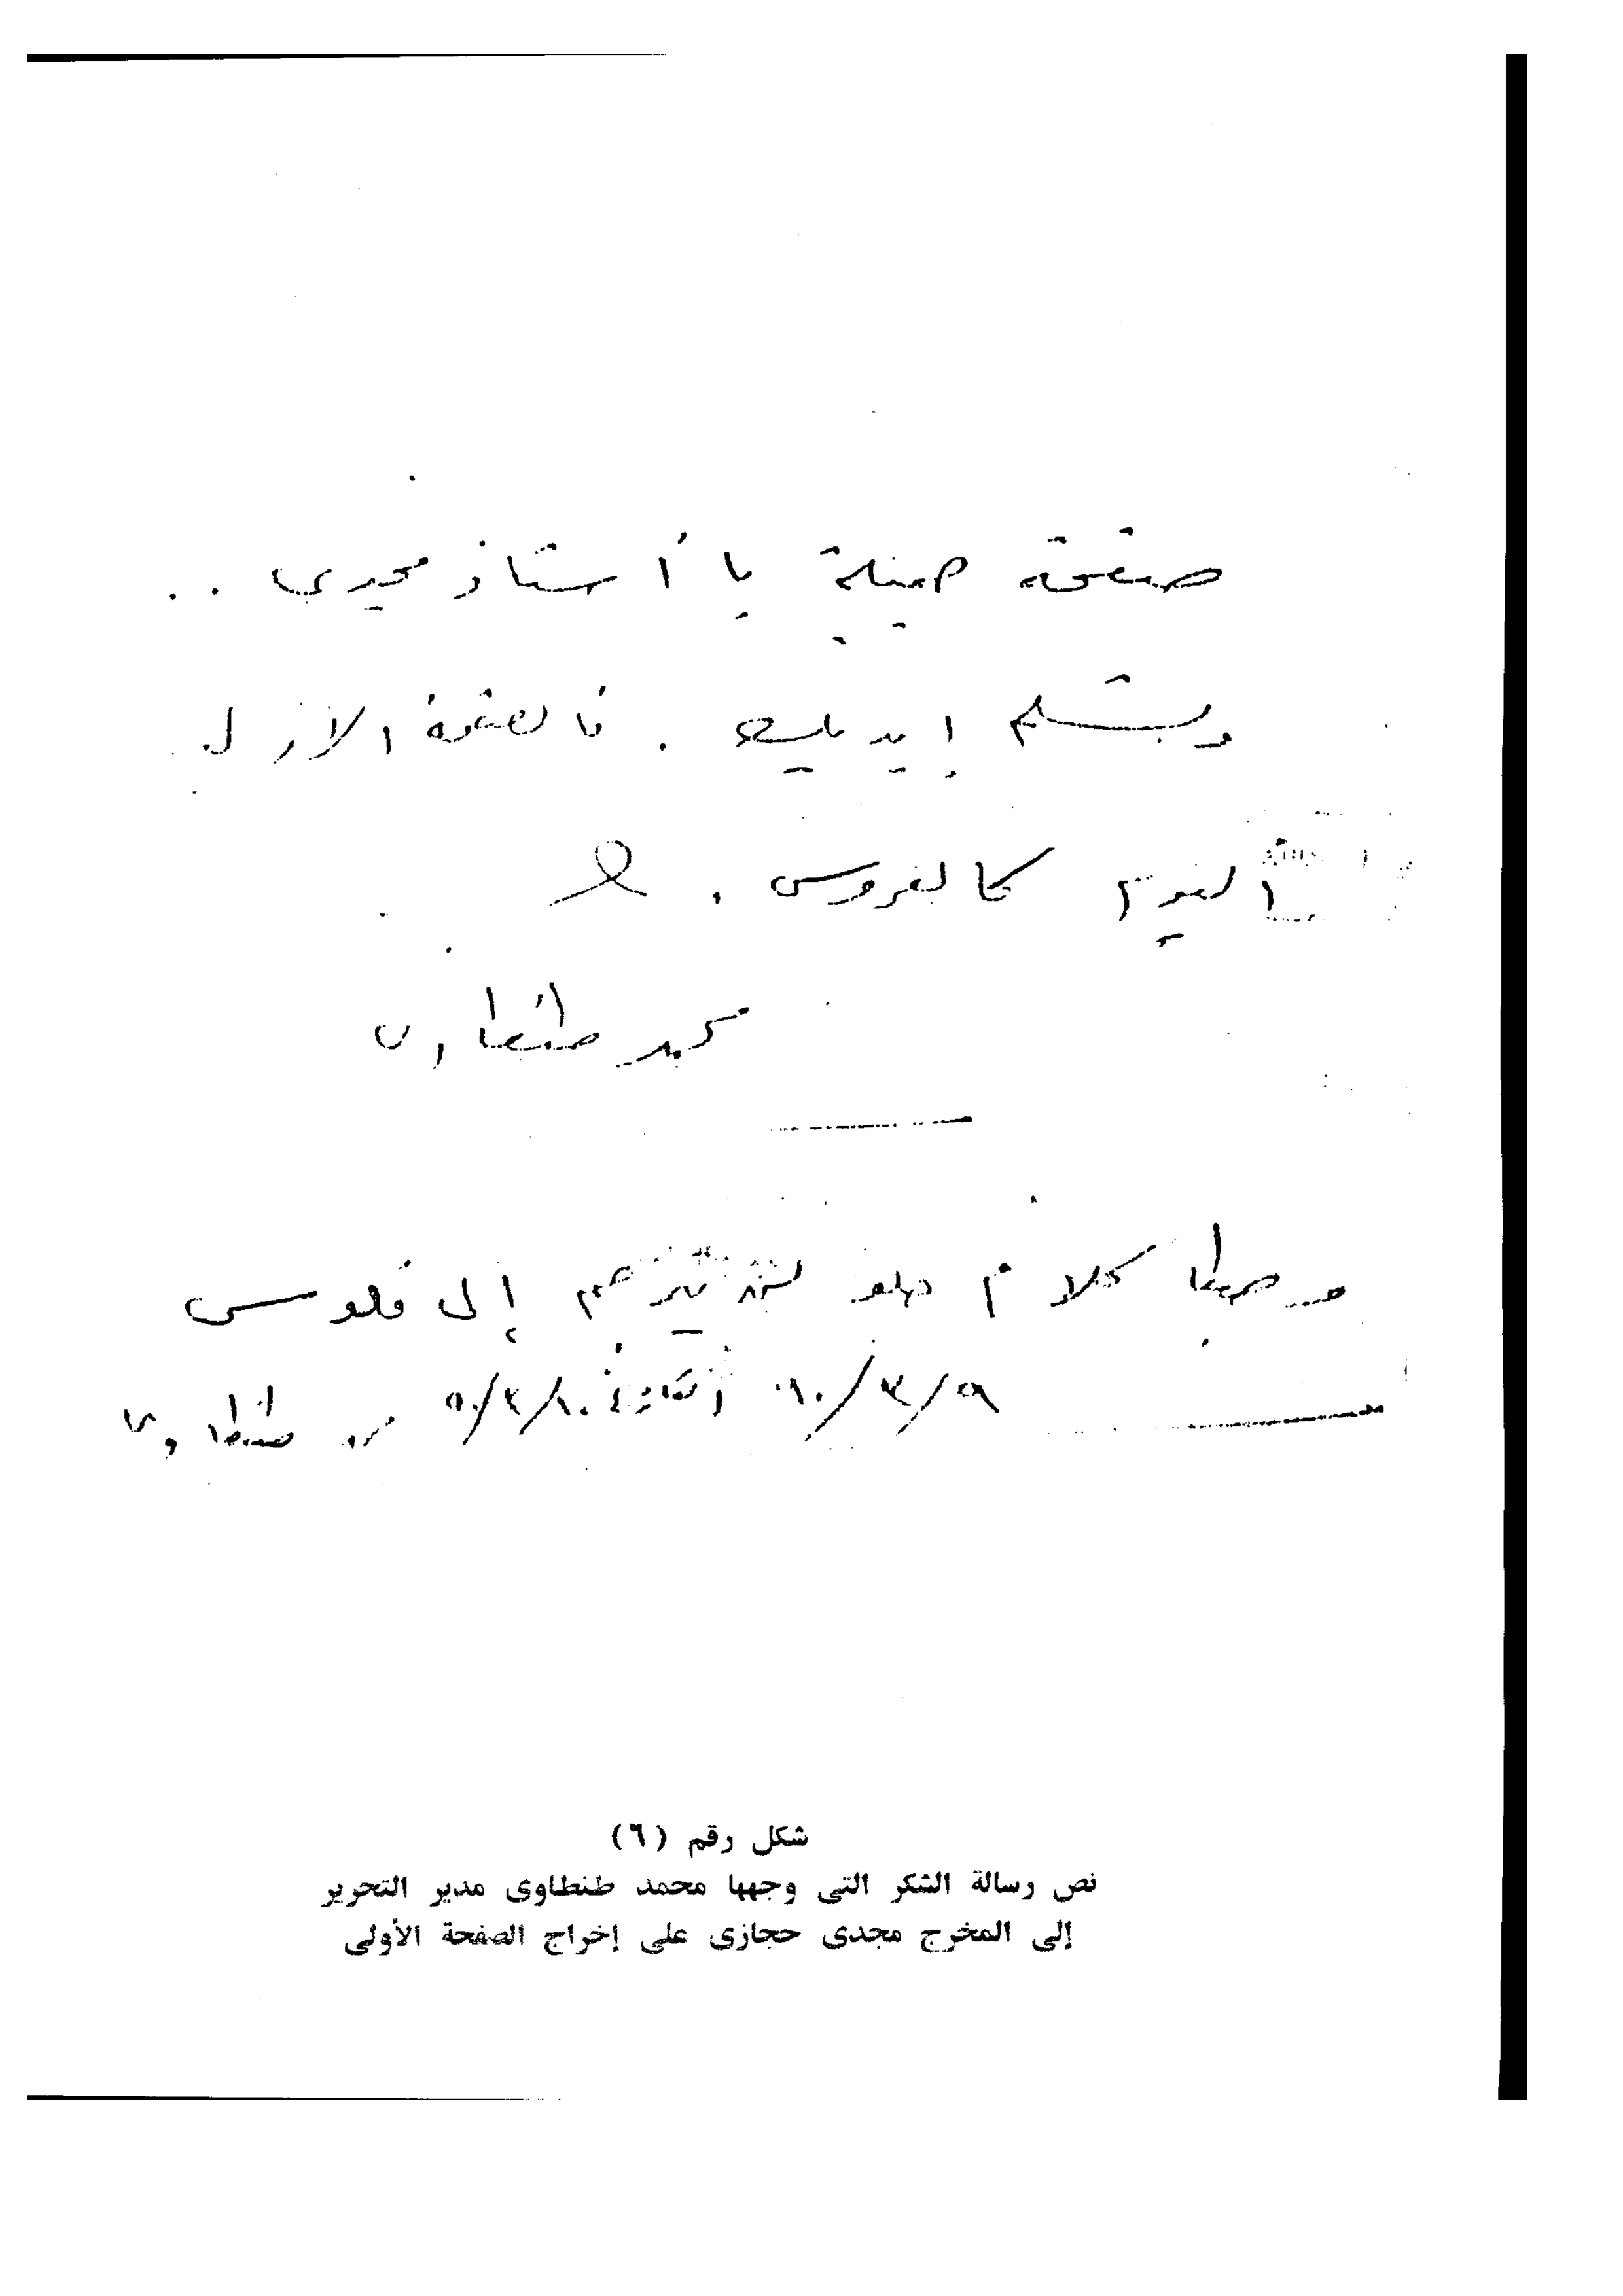 صفحة جميلة يا أستاذ مجدى ..
وتسلم إيديك . فالصفحة الأولى
اليوم كالعروس .
محمد طنطاوى
كلام حلو إلى فلوس
طنطاوى
شكل رقم (٦)
نص رسالة الشكر التى وجهها محمد طنطاوى مدير التحرير
إلى المخرج مجدى حجازى على إخراج الصفحة الأولى